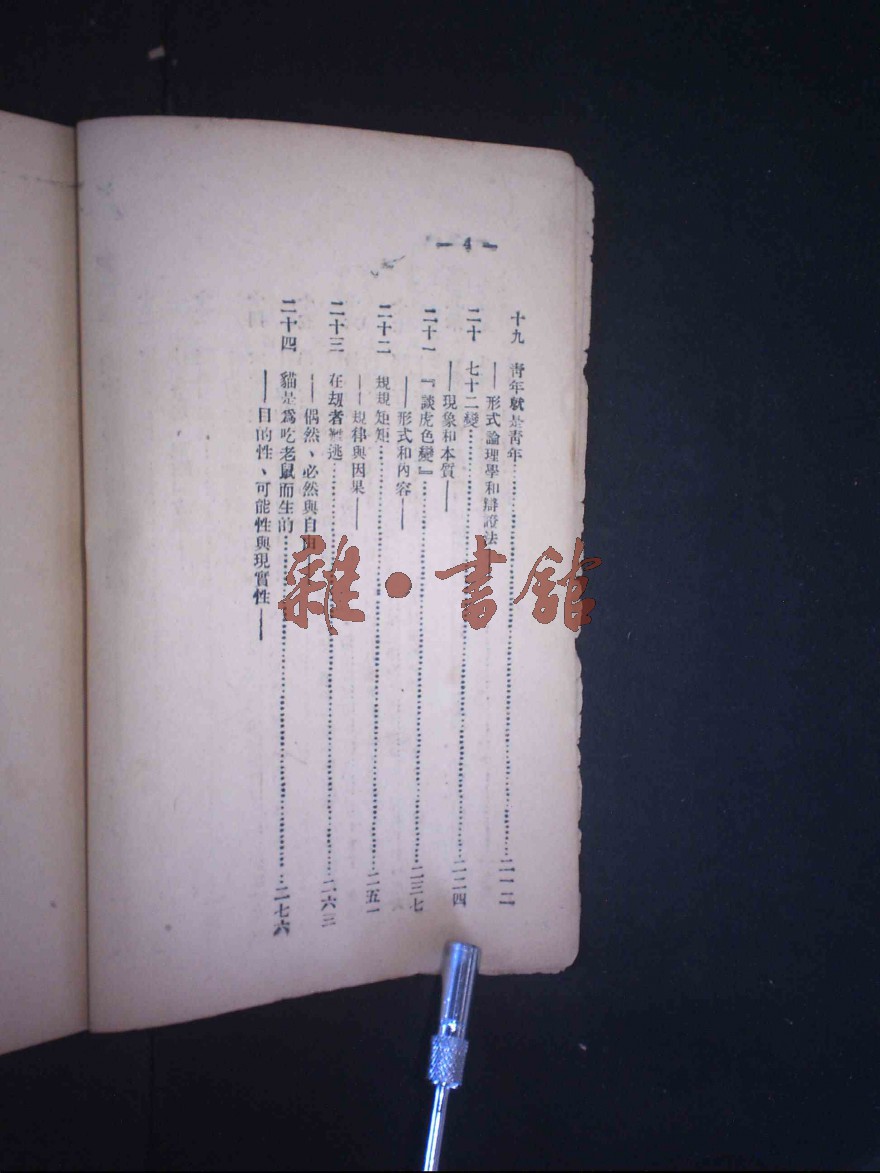 — 4 —
十九 靑年就是靑年……二一二
——形式論理學和辯證法
二十 七十二變……二二四
——現象和本質——
二十一 『談虎色變』……二三七
——形式和內容——
二十二 規規矩矩……二五一
——規律與因果——
二十三 在劫者難逃……二六三
——偶然、必然與自由
二十四 貓是爲吃老鼠而生的……二七六
——目的性、可能性與現實性——
雜·書館